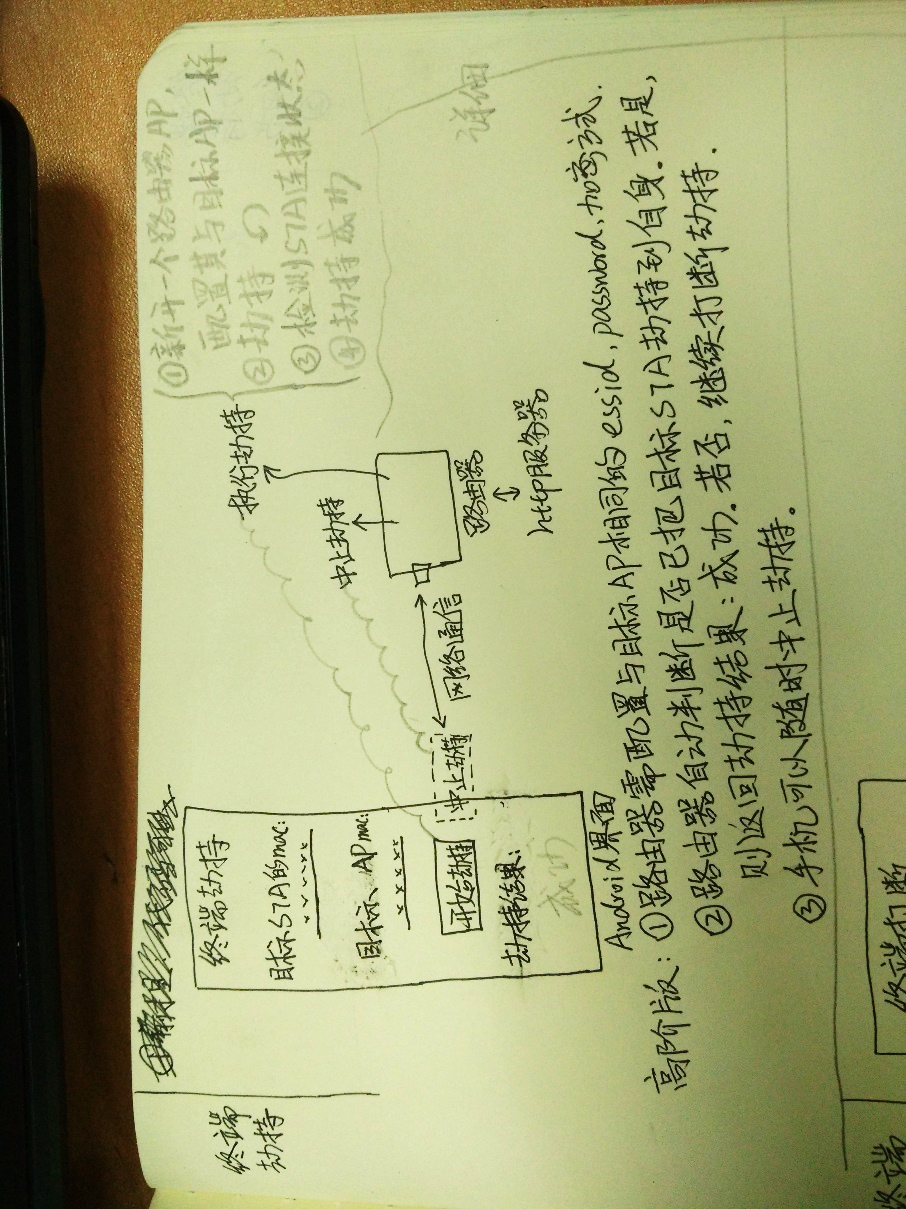 终端
劫持
终端劫持
目标STA的mac:
目标APmac:
开始劫持
中止劫持
劫持结果:
成功
Android界面
网络通信
中止劫持
执行劫持
路由器
http服务器
①新开一个路由器AP,
配置其与目标AP一样
②劫持
③检测STA连接状态
④劫持成功
详细
高阶版:①路由器需配置与目标AP相同的essid,password,加密方式.
②路由器自动判断是否已把目标STA劫持到自身.若是,
则返回劫持结果:成功.若否,继续打断劫持.
③手机可以随时中止劫持。
终端打断
终端